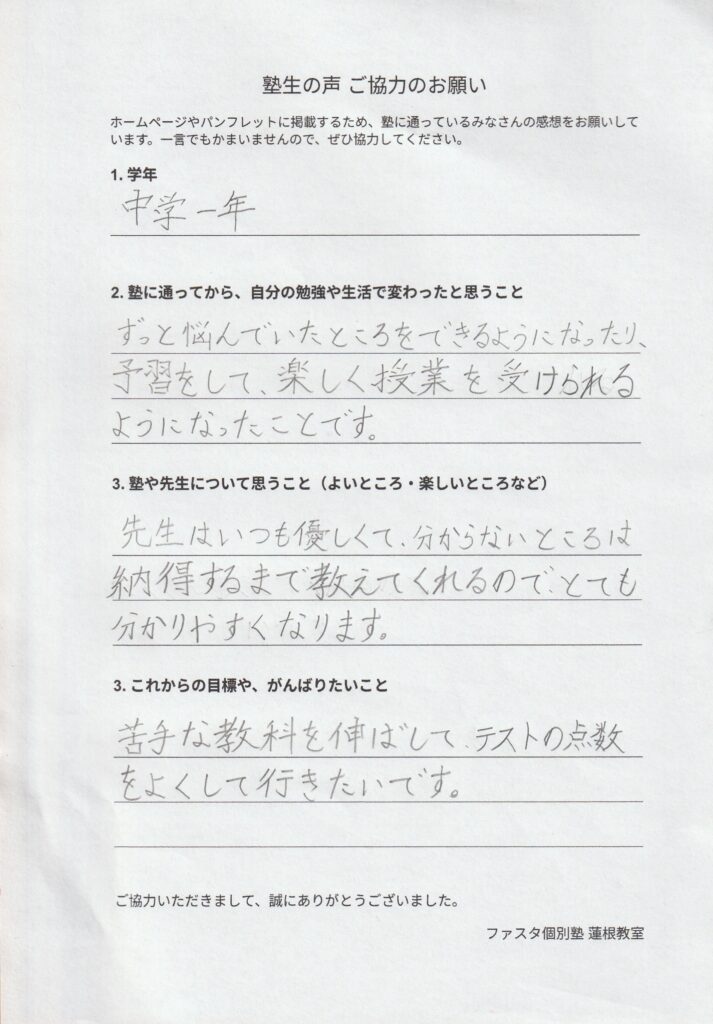 塾生の声 ご協力のお願い
ホームページやパンフレットに掲載するため、塾に通っているみなさんの感想をお願いして
います。一言でもかまいませんので、ぜひ協力してください。
1. 学年
中学一年
2. 塾に通ってから、自分の勉強や生活で変わったと思うこと
ずっと悩んでいたところをできるようになったり、
予習をして、楽しく授業を受けられる
ようになったことです。
3. 塾や先生について思うこと（よいところ・楽しいところなど）
先生はいつも優しくて、分からないところは
納得するまで教えてくれるので、とても
分かりやすくなります。
3. これからの目標や、がんばりたいこと
苦手な教科を伸ばして、テストの点数
をよくして行きたいです。
ご協力いただきまして、誠にありがとうございました。
ファスタ個別塾 蓮根教室